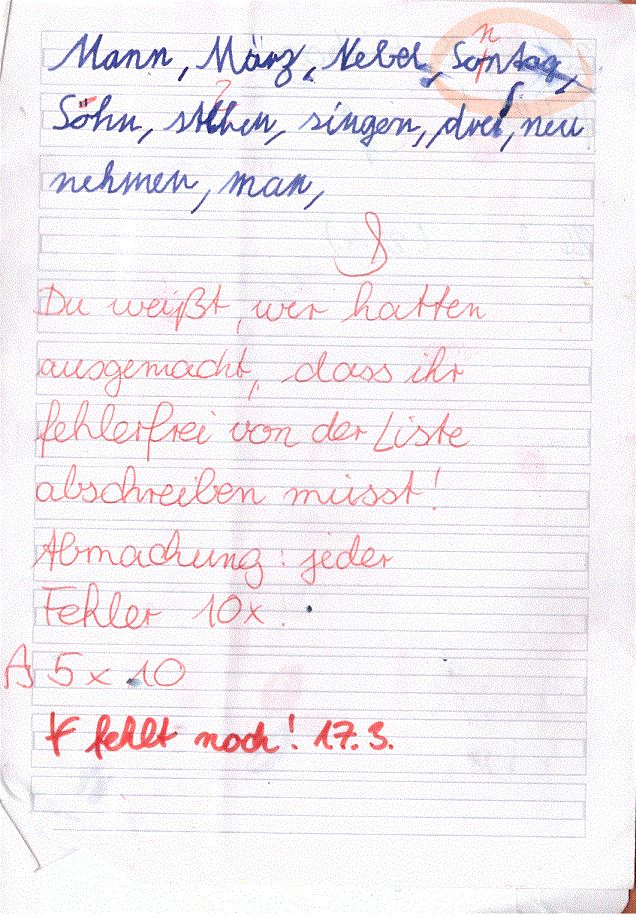 Mann, März, Nebel, Sontag,
Söhn, stehen, singen, drei, neu
nehmen, man,
Du weißt, wir hatten
ausgemacht, dass ihr
fehlerfrei von der Liste
abschreiben müsst!
Abmachung: jeder
Fehler 10x.
A 5 x 10
F fehlt noch! 17.3.